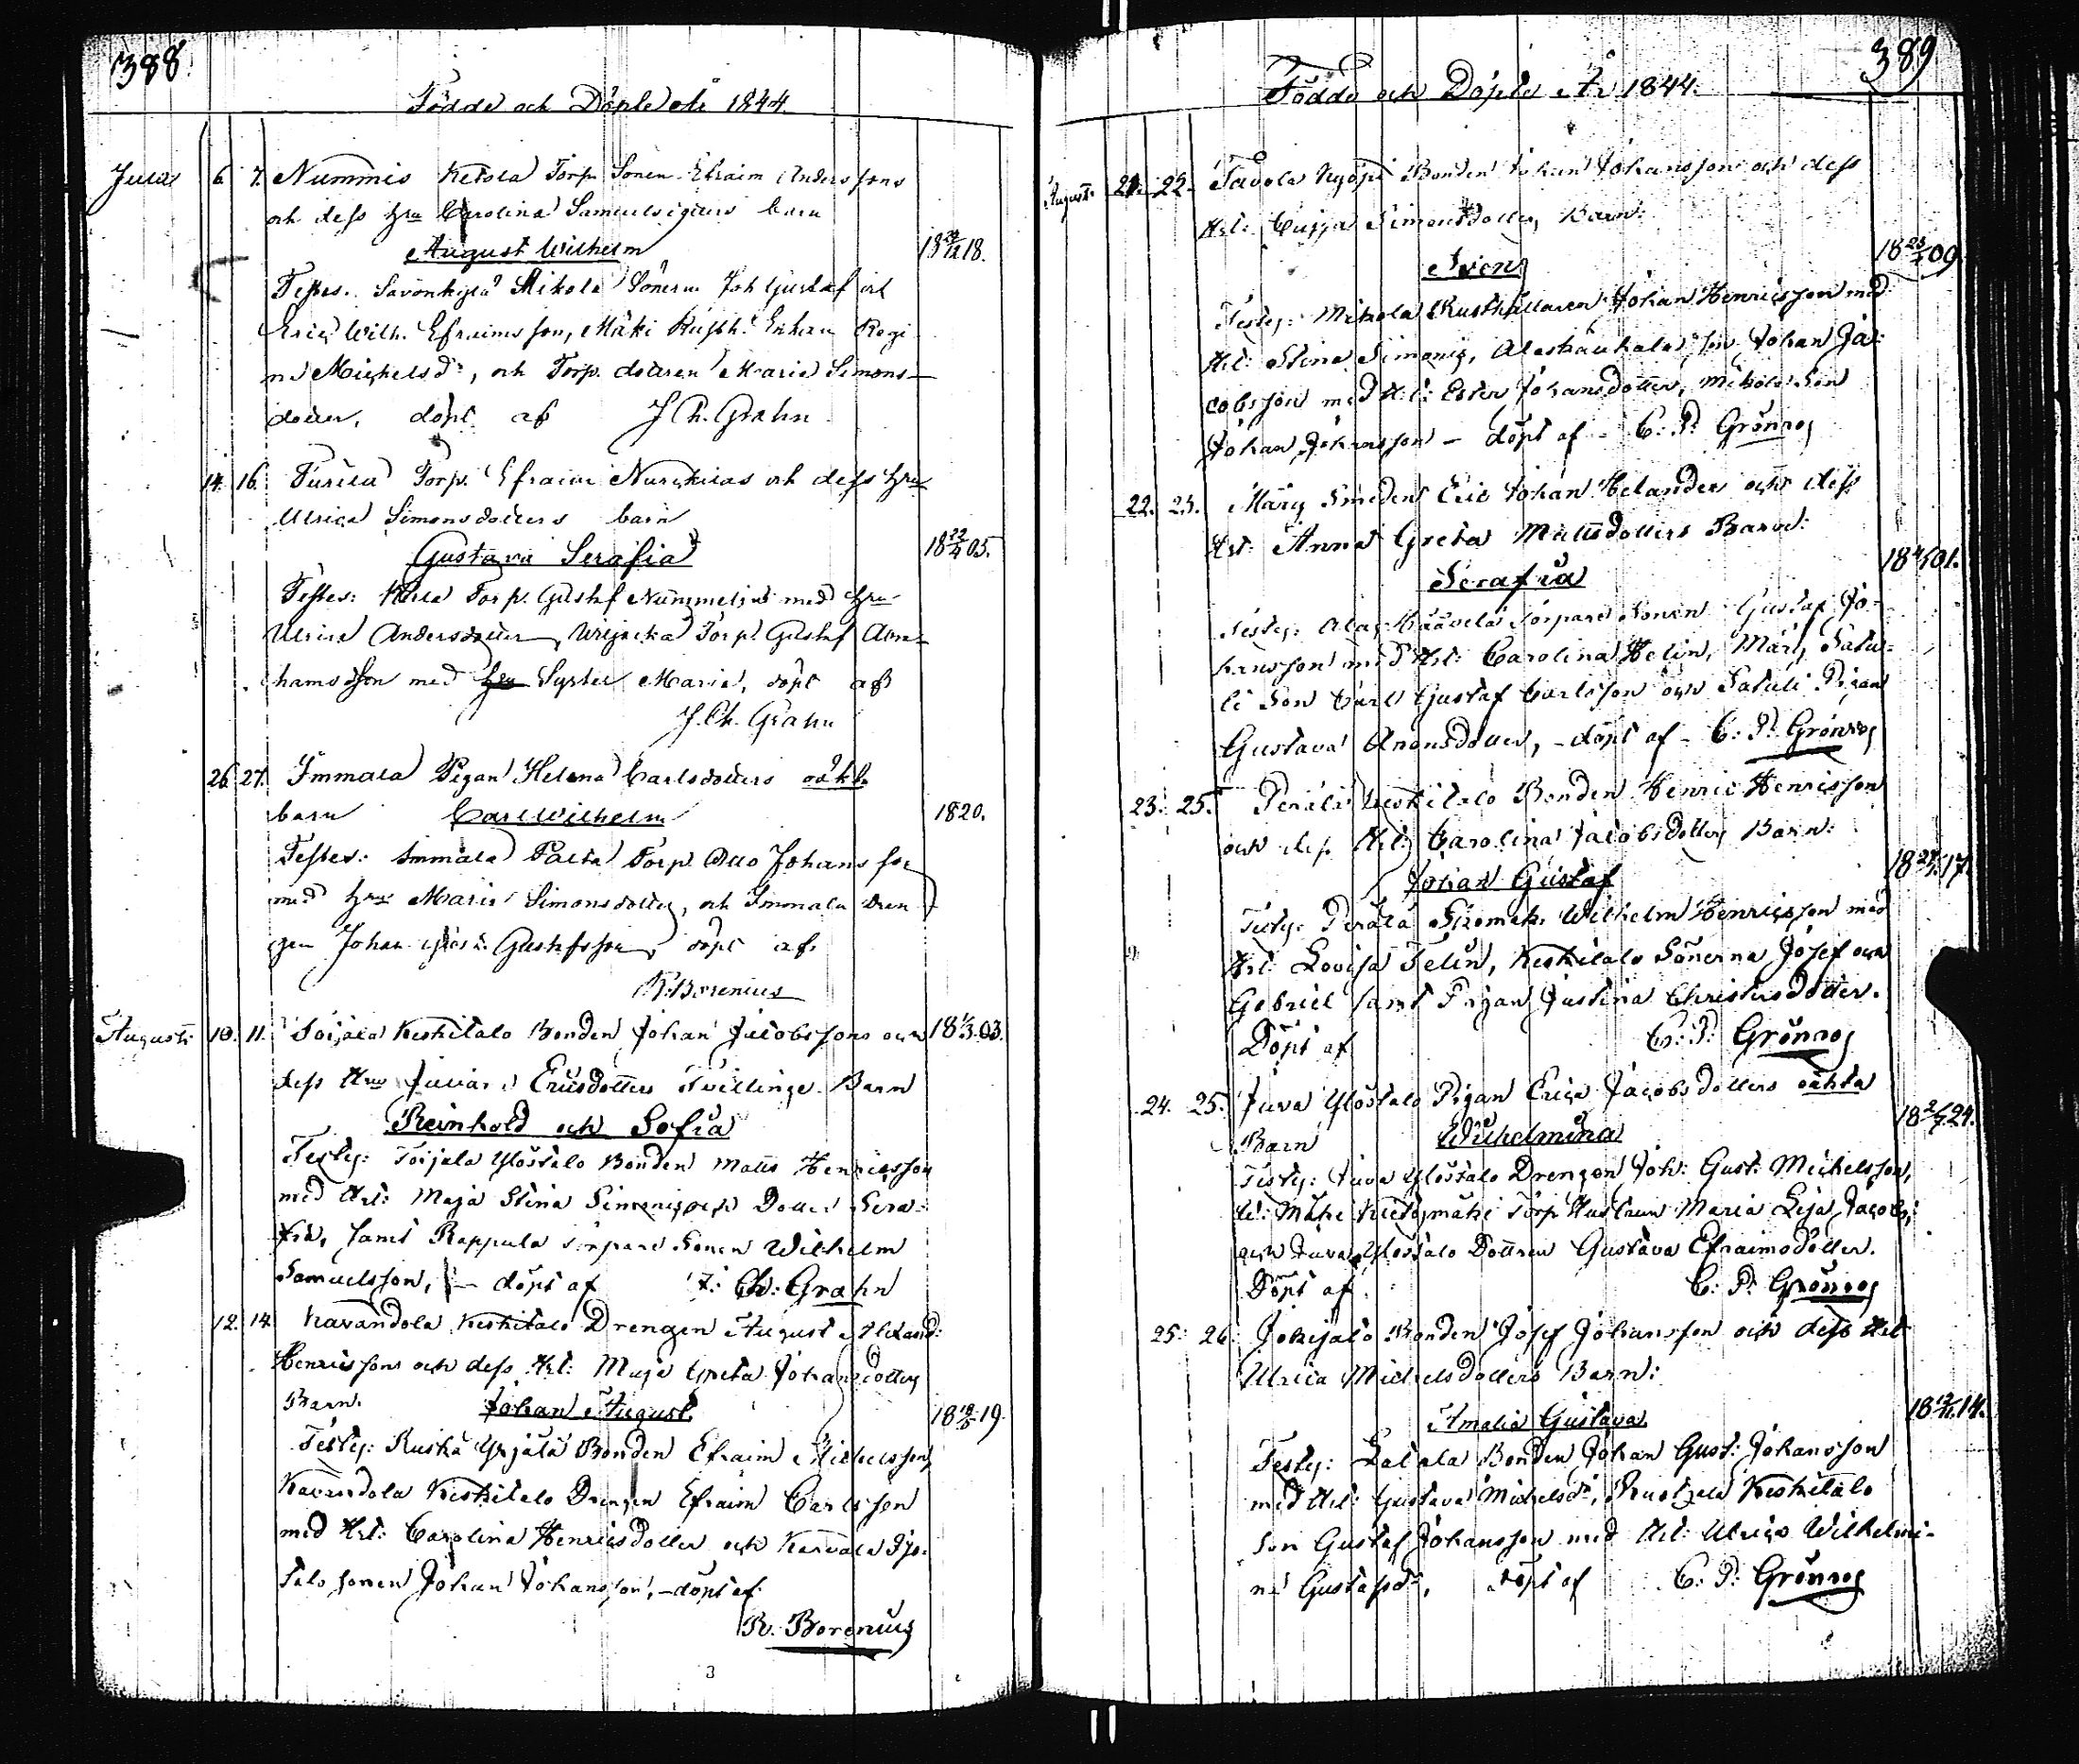 388
Födde och Döpte År 1844
Julii 6. 7. Nummis Ketola Torp. Sonen Efraim Anderssons
och dess Hru Carolina Samuelsdotters barn
August Wilhelm 18 18.
Testes. Savonkylä Mikola Sönerne Joh Gustaf och
Eric Wilh. Efraimsson, Mäki Rusth. Enkan Regi
na Michelsdr, och Torp. dottren Maria Simons
dotter, döpt af J Ch. Grahn
14. 16. Torp. Efraim Nurckilas och dess Hru
Ulrica Simonsdotters barn
Gustava Serafia 18 05.
Testes: Torp. Gustaf Nummelin med Hru
Ulrica Andersdotter, Torp. Gustaf Abra-
hamsson med Hru Syster Maria, döpt af
J. Ch. Grahn
26 27. Immala Pigan Helena Carlsdotters oäkta
barn Carl Wilhelm 1820.
Testes: Immala Torp. Otto Johansson
med Hru Maria Simonsdotter, och Immala Dren
gen Johan Gustafsson, döpt af
R. Borenius
Augusti 10. 11. Toijala Keskitalo Bonden Johan Jacobssons och 18 03.
dess Hru Juliana Ericsdotters Tvillinge Barn
Reinhold och Sofia
Testes: Toijala Ylöstalo Bonden Matts Henricsson
med Hst: Maja Stina Simons och Dotter Sera-
fia, samt Rappula Torpare Sonen Wilhelm
Samuelsson, – döpt af J: Ch: Grahn
12. 14. Kavandola Keskitalo Drengen August Alexand:
Henricssons och dess Hst: Maja Greta Johansdotters
Barn. Johan August 18 19.
Testes: Ruska Yrjälä Bonden Efraim Michelsson,
Kavandola Keskitalo Drengen Efraim Carlsson
med Hst: Carolina Henricsdotter och Karvala Iso-
talo sonen Johan Johansson, – döpt af
R. Borenius
389
Födde och Döpte År 1844.
Augusti 21. 22. Tavola Bonden Johan Johansson och dess
Hst: Caisa Simonsdotters Barn:
Iven 18 09.
Testes: Mikola Rusthållaren Johan Henricsson med
Hst: Stina Simons, son Johan Ja-
cobsson med Hst: Ester Johansdotter, Mikola Son
Johan Johansson – döpt af – C: P: Grönroos
22. 25. Märy Smeden Eric Johan Helander och dess
Hst: Anna Greta Mattsdotters Barn:
Serafia 18 01.
Testes: Alas Käävelä Torpare Sonen Gustaf Jo-
hansson med Hst: Carolina Helin, Märy Satu-
li Son Carl Gustaf Carlsson och Satuli Pigan
Gustava Anansdotter, – döpt af – C: P: Grönroos
23. 25. Perälä Keskitalo Bonden Henric Henricsson
och dess Hst: Carolina Jacobsdotters Barn:
Johan Gustaf 18 17.
Testes: Perälä Skomak. Wilhelm Henricsson med
Hst: Lovisa Felin, Keskitalo Sönerna Josef och
Gabriel samt Pigan Justina Christersdotter.
Döpt af C: P: Grönroos
24. 25. Juva Ylöstalo Pigan Erica Jacobsdotters oäkta
Barn Wilhelmina 18 24.
Testes: Juva Ylöstalo Drengen Joh: Gust: Michelsson,
Mäki Torp. Hustrun Maria Lisa Jacobs,
och Juva Ylöstalo Dottren Gustava Efraimsdotter.
Döpt af. C: P: Grönroos
25. 26. Jokisalo Bonden Josef Johansson och dess Hst
Ulrica Michelsdotters Barn:
Amalia Gustava 18 14.
Testes: Lalala Bonden Johan Gust: Johansson
med Hst: Gustava Michelsdr, Keskitalo
Son Gustaf Johansson med Hst: Ulrica Wilhelmi-
na Gustafsdr, döpt af C: P: Grönroos